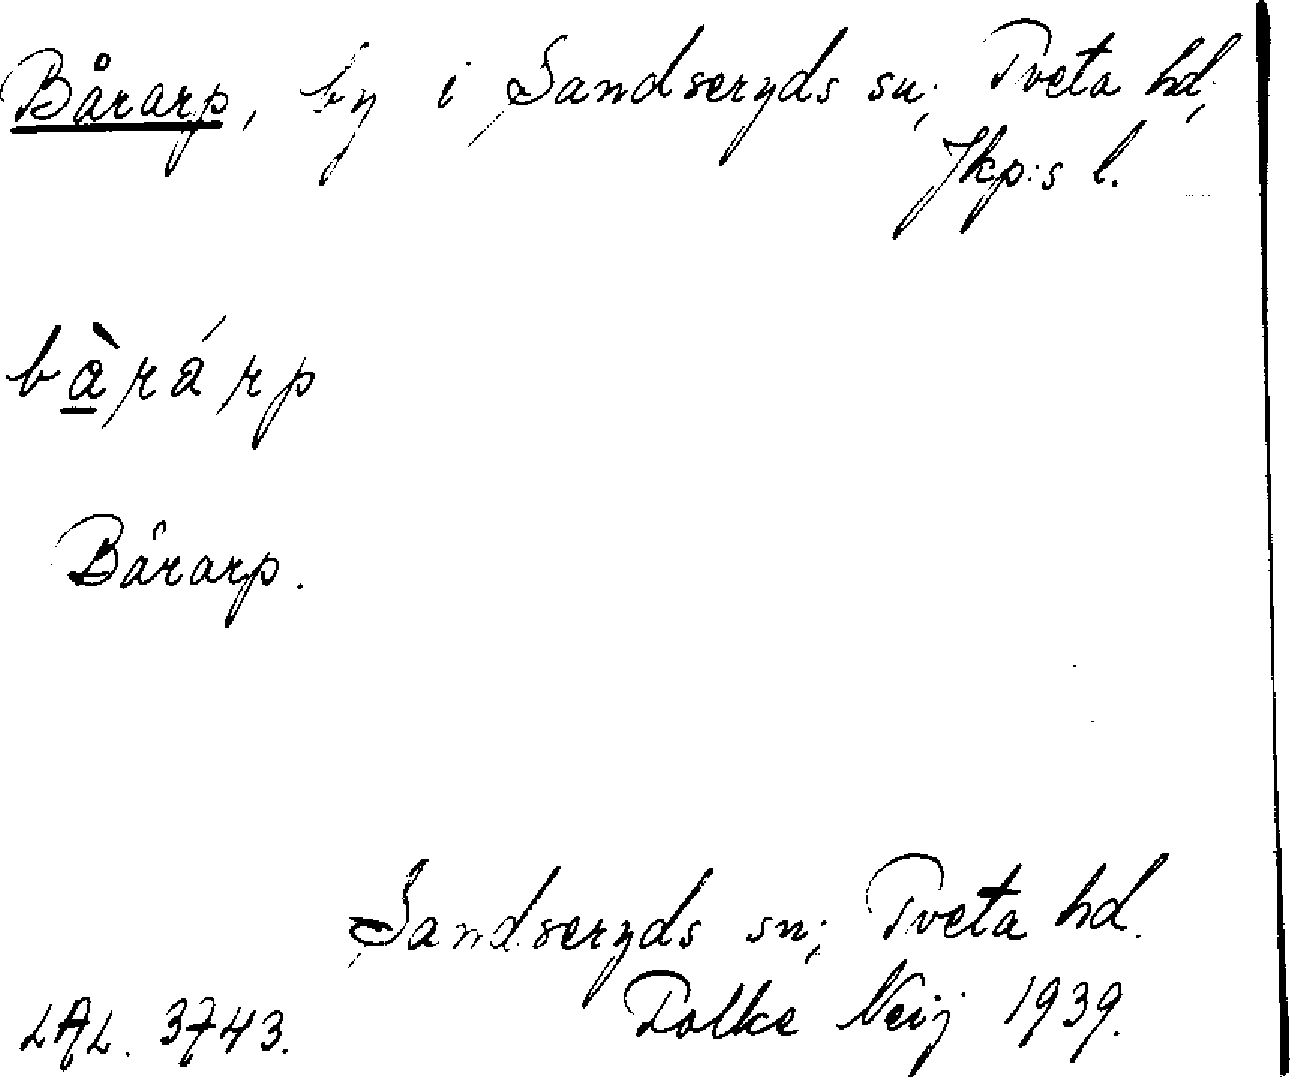 Bårarp, by i Sandseryds sn; Tveta hd,
Jkp:s l.
bàrárp
Bårarp.
Sandseryds sn; Tveta hd.
Neij 1939.
LAL. 3743.